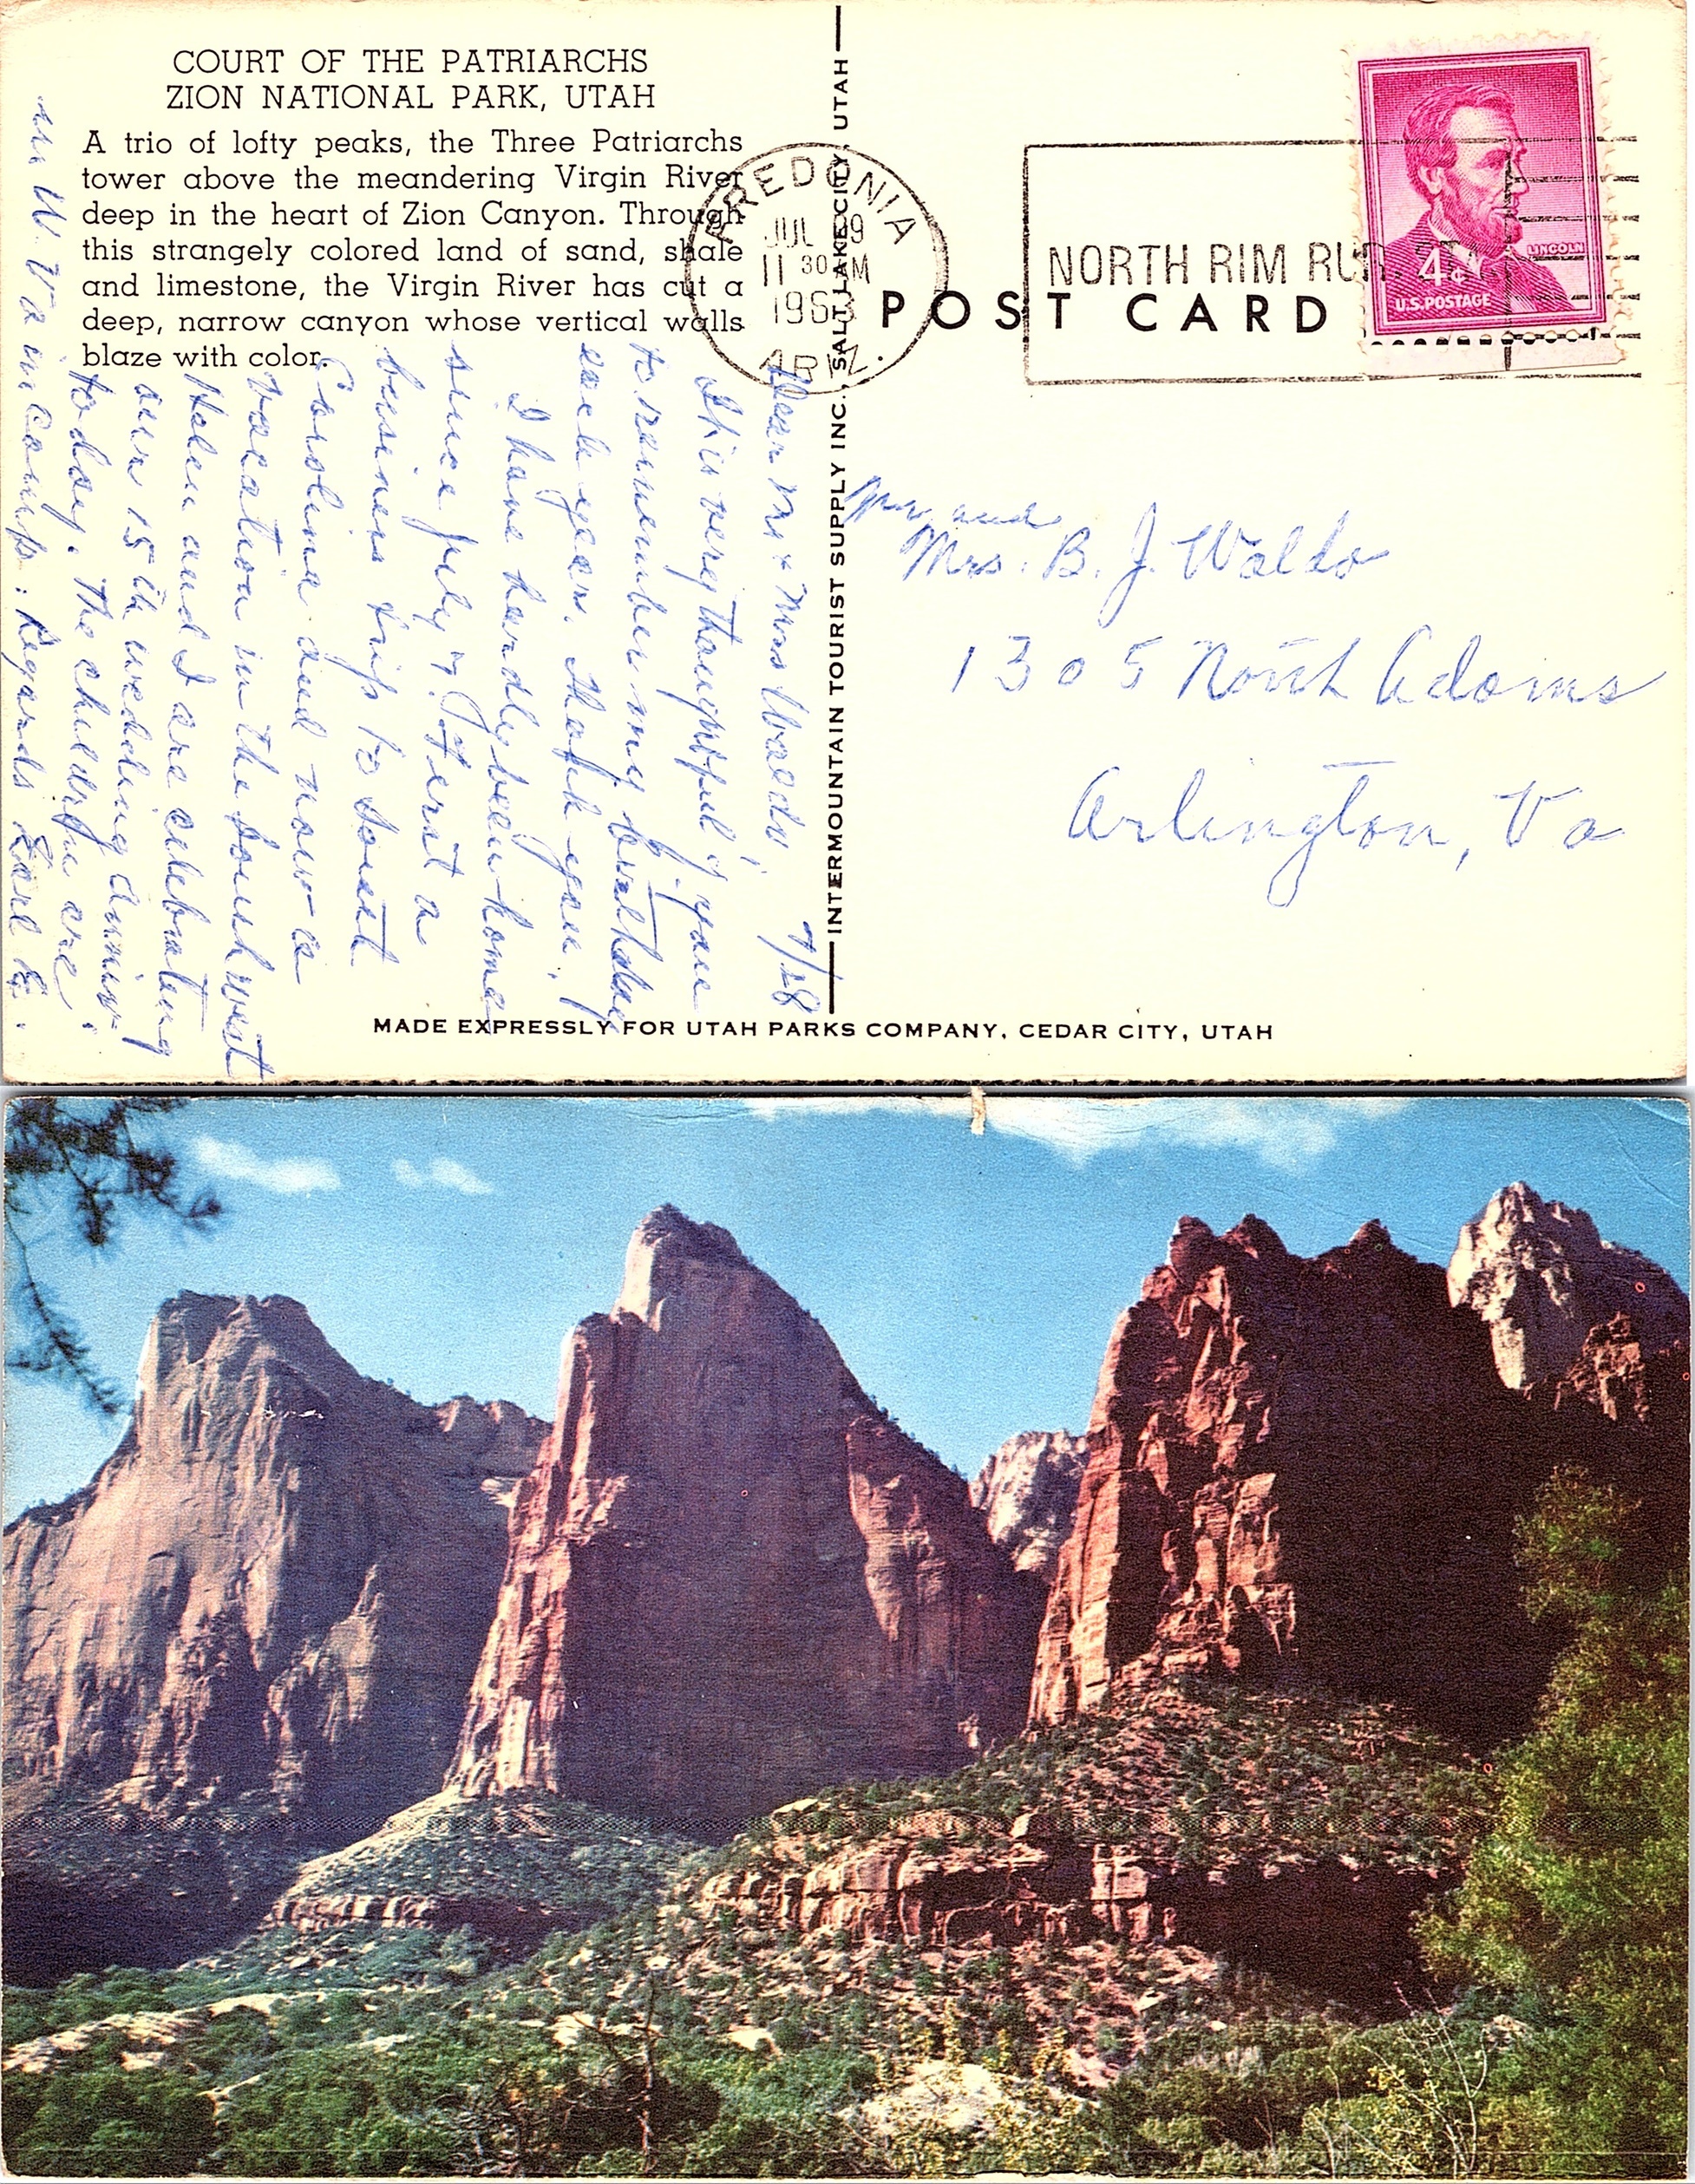 COURT OF THE PATRIARCHS
ZION NATIONAL PARK, UTAH
A trio of lofty peaks, the Three Patriarchs
tower above the meandering Virgin River
deep in the heart of Zion Canyon. Through
this strangely colored land of sand, shale
and limestone, the Virgin River has cut a
deep, narrow canyon whose vertical walls
blaze with color.
7/28
Dear Mr & Mrs Waldo,
It is very thoughtful of you
to remember my birthday
each year. Thank you.
I have hardly been home
since July 4. First a
business trip to South
Carolina and now a
vacation in the Southwest
Helen and I are celebrating
our 15th wedding anniv.
today. The children are
in camps. Regards Earl E.
in W. Va
INTERMOUNTAIN TOURIST SUPPLY INC., SALT LAKE CITY, UTAH
FREDONIA
JUL 29
11 30 AM
1963
ARIZ.
NORTH RIM RUR. STA.
POST CARD
LINCOLN
4¢
U.S. POSTAGE
Mr. and
Mrs. B. J. Waldo
1305 North Adams
Arlington, Va
MADE EXPRESSLY FOR UTAH PARKS COMPANY, CEDAR CITY, UTAH